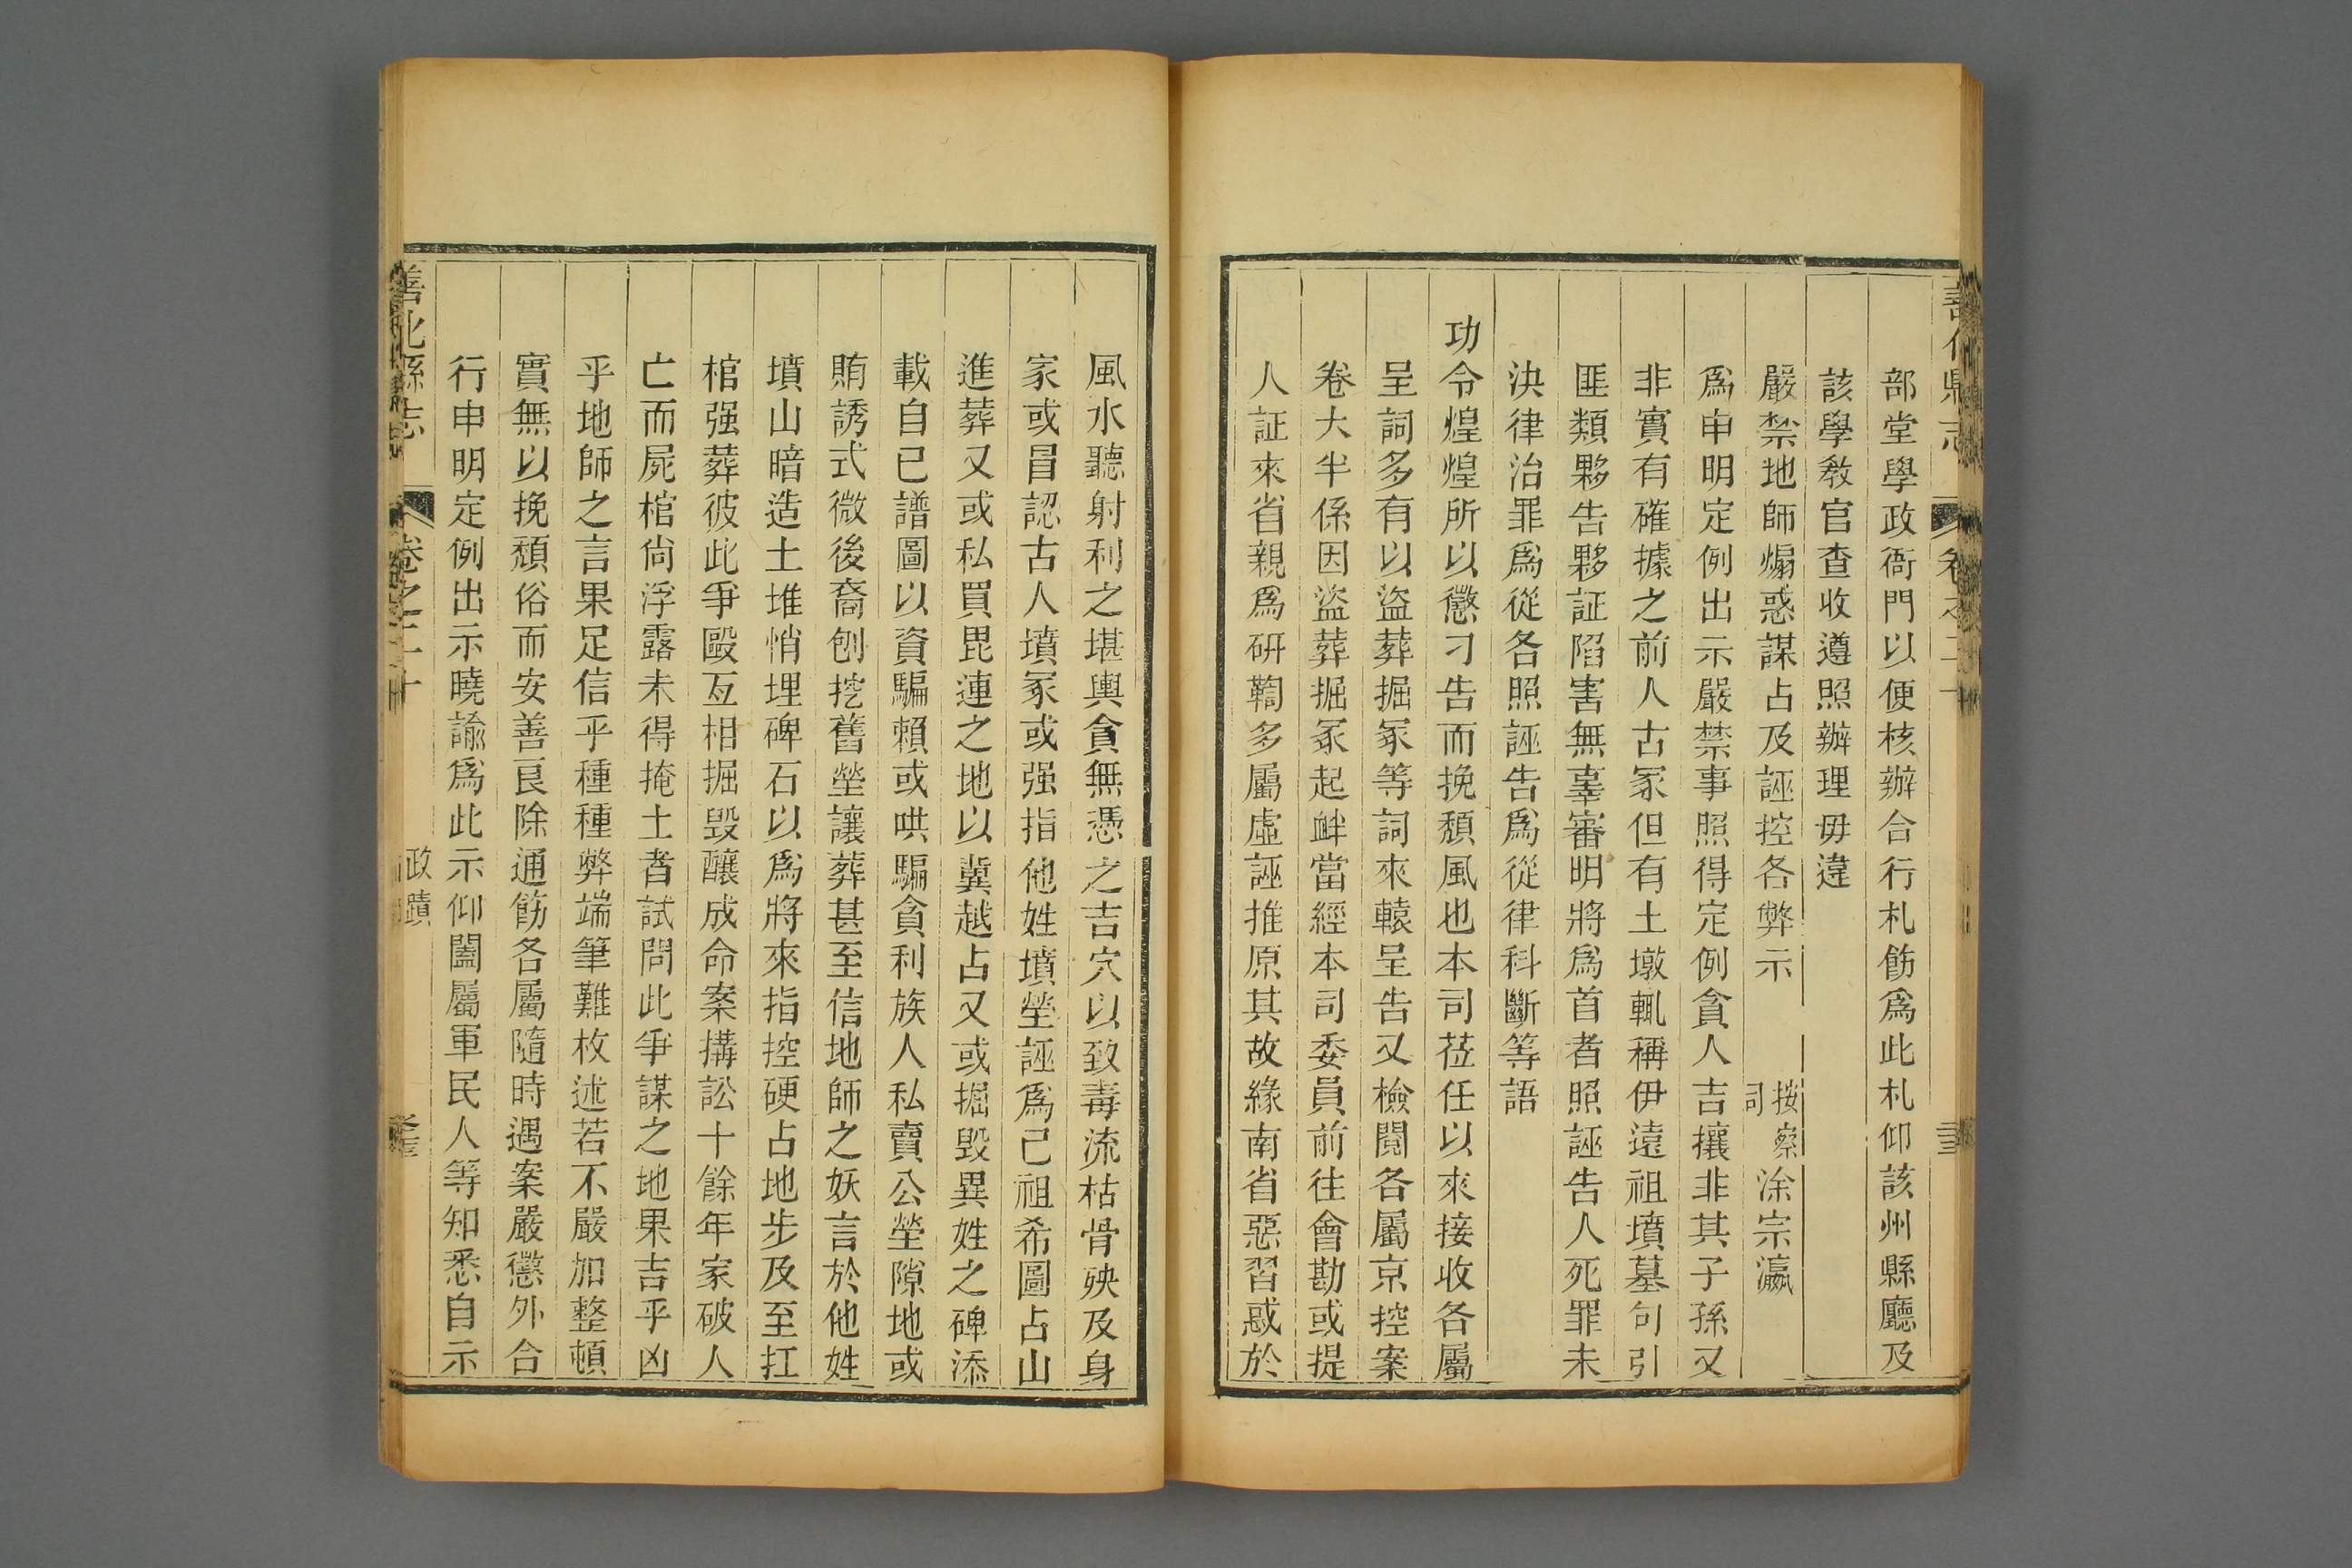 部堂學政衙門以便核辦合行札飭爲此札仰該州縣廳及
該學教官查收遵照辦理毋違
嚴禁地師煽惑謀占及誣控各弊示 按察司涂宗瀛
爲申明定例出示嚴禁事照得定例貪人吉攘非其子孫又
非實有確據之前人古冢但有土墩輒稱伊遠祖墳墓勾引
匪類夥告夥証陷害無辜審明將爲首者照誣告人死罪未
決律治罪爲從各照誣告爲從律科斷等語
功令煌煌所以懲刁告而挽頹風也本司莅任以來接收各屬
呈詞多有以盜葬掘冢等詞來轅呈告又檢閱各屬京控案
卷大半係因盜葬掘冢起衅當經本司委員前往會勘或提
人証來省親爲研鞫多屬虛誣推原其故緣南省惡習惑於
風水聽射利之堪輿貪無憑之吉穴以致毒流枯骨殃及身
家或冒認古人墳冢或强指他姓墳塋誣爲己祖希圖占山
進葬又或私買毘連之地以冀越占又或掘毀異姓之碑添
載自已譜圖以資騙賴或哄騙貪利族人私賣公塋隙地或
賄誘式微後裔刨挖舊塋讓葬甚至信地師之妖言於他姓
墳山暗造土堆悄埋碑石以爲將來指控硬占地步及至扛
棺强葬彼此爭毆互相掘毀釀成命案搆訟十餘年家破人
亡而屍棺尙浮露未得掩土者試問此爭謀之地果吉乎凶
乎地師之言果足信乎種種弊端筆難枚述若不嚴加整頓
實無以挽頹俗而安善良除通飭各屬隨時遇案嚴懲外合
行申明定例出示曉諭爲此示仰闔屬軍民人等知悉自示
善化縣志 卷之二十 政蹟